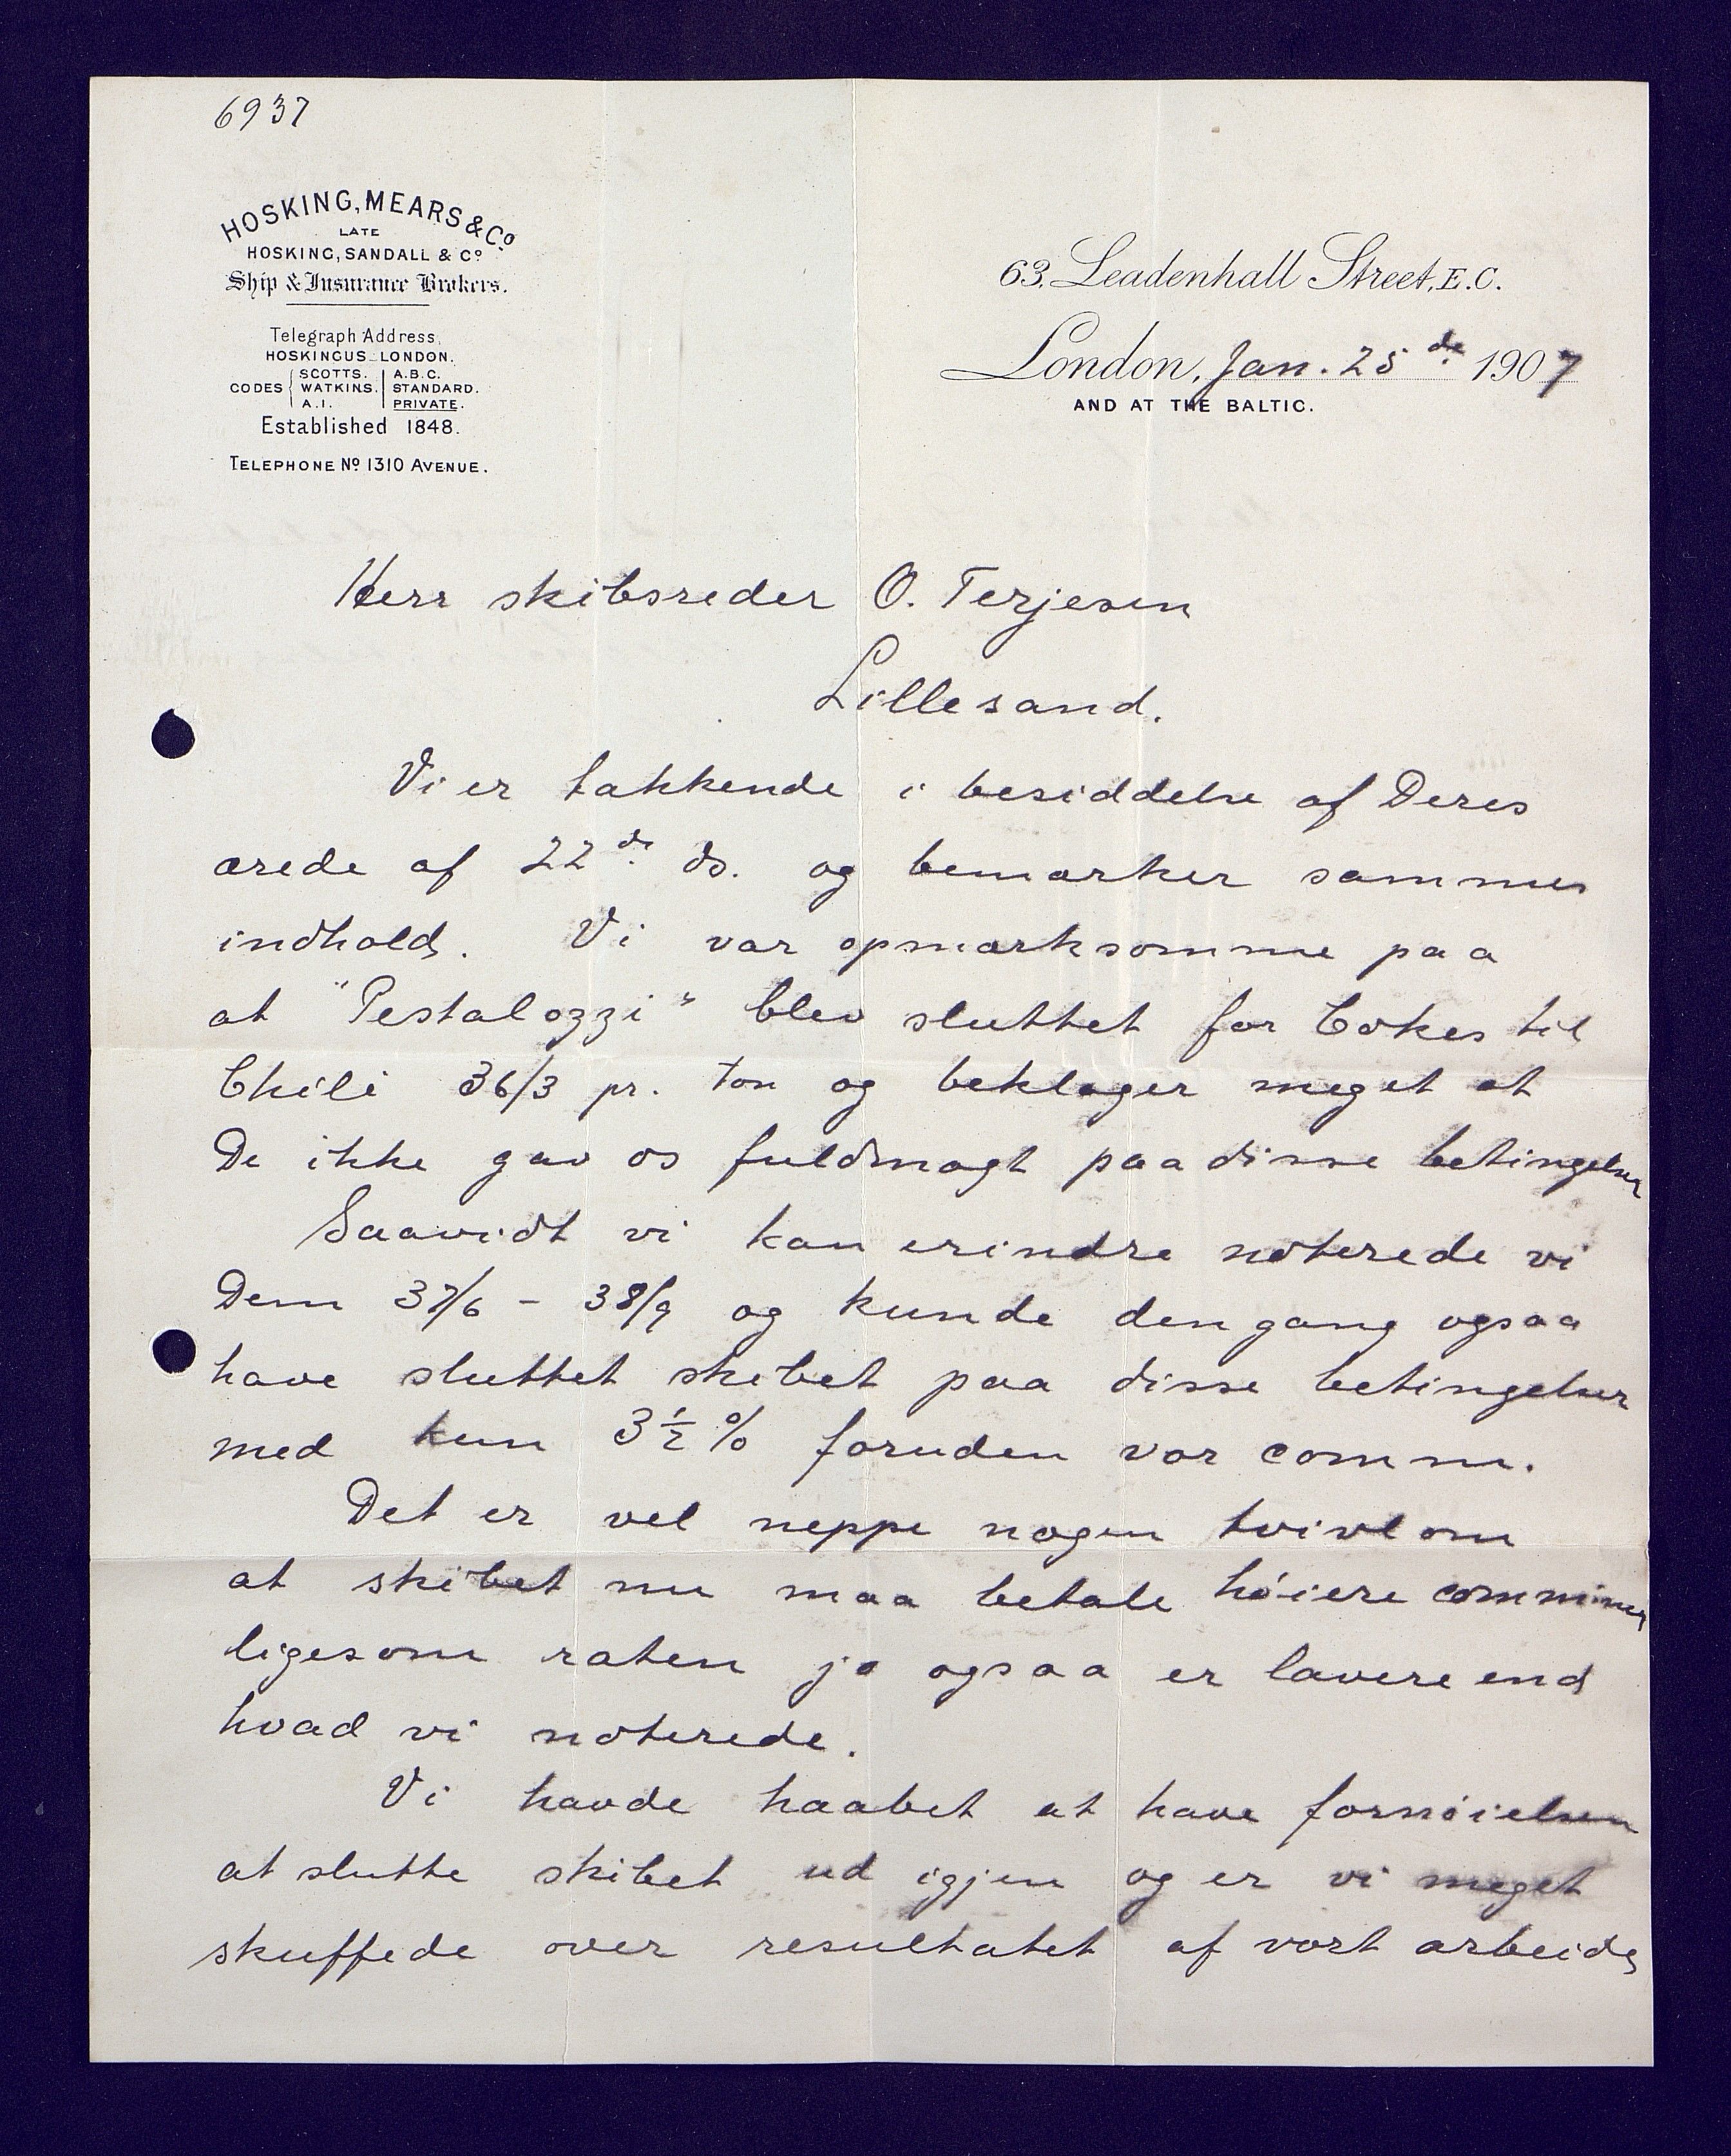 6937
HOSKING, MEARS & Co.
LATE
HOSKING, SANDALL & Co.
Ship & Insurance Brokers.
Telegraph Address,
HOSKINGUS_LONDON.
CODES
SCOTTS. A.B.C.
WATKINS. STANDARD.
A.I. PRIVATE.
Established 1848.
TELEPHONE No. 1310 AVENUE.
63, Leadenhall Street, E.C.
London, Jan. 25 de 1907
AND AT THE BALTIC.
Herr skibsreder O. Terjesen
Lillesand.
Vi er takkende i besiddelse af Deres
ærede af 22 de ds. og bemærker sammes
indhold. Vi var opmærksomme paa
at "Pestalozzi" blev sluttet for Cokes til
Chili 36/3 pr. ton og beklager meget at
De ikke gav os fuldmagt paa disse betingelser
Saavidt vi kan erindre noterede vi
Dem 37/6 - 38/9 og kunde dengang ogsaa
have sluttet skibet paa disse betingelser
med kun 3 1/2 % foruden vor comm.
Det er vel neppe nogen tvivl om
at skibet nu maa betale høiere comminer
ligesom raten jo ogsaa er lavere end
hvad vi noterede.
Vi havde haabet at have fornøielsen
at slutte skibet ud igjen og er vi meget
skuffede over resultatet af vort arbeide